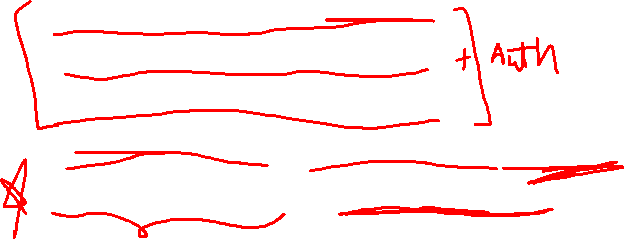 + Auth